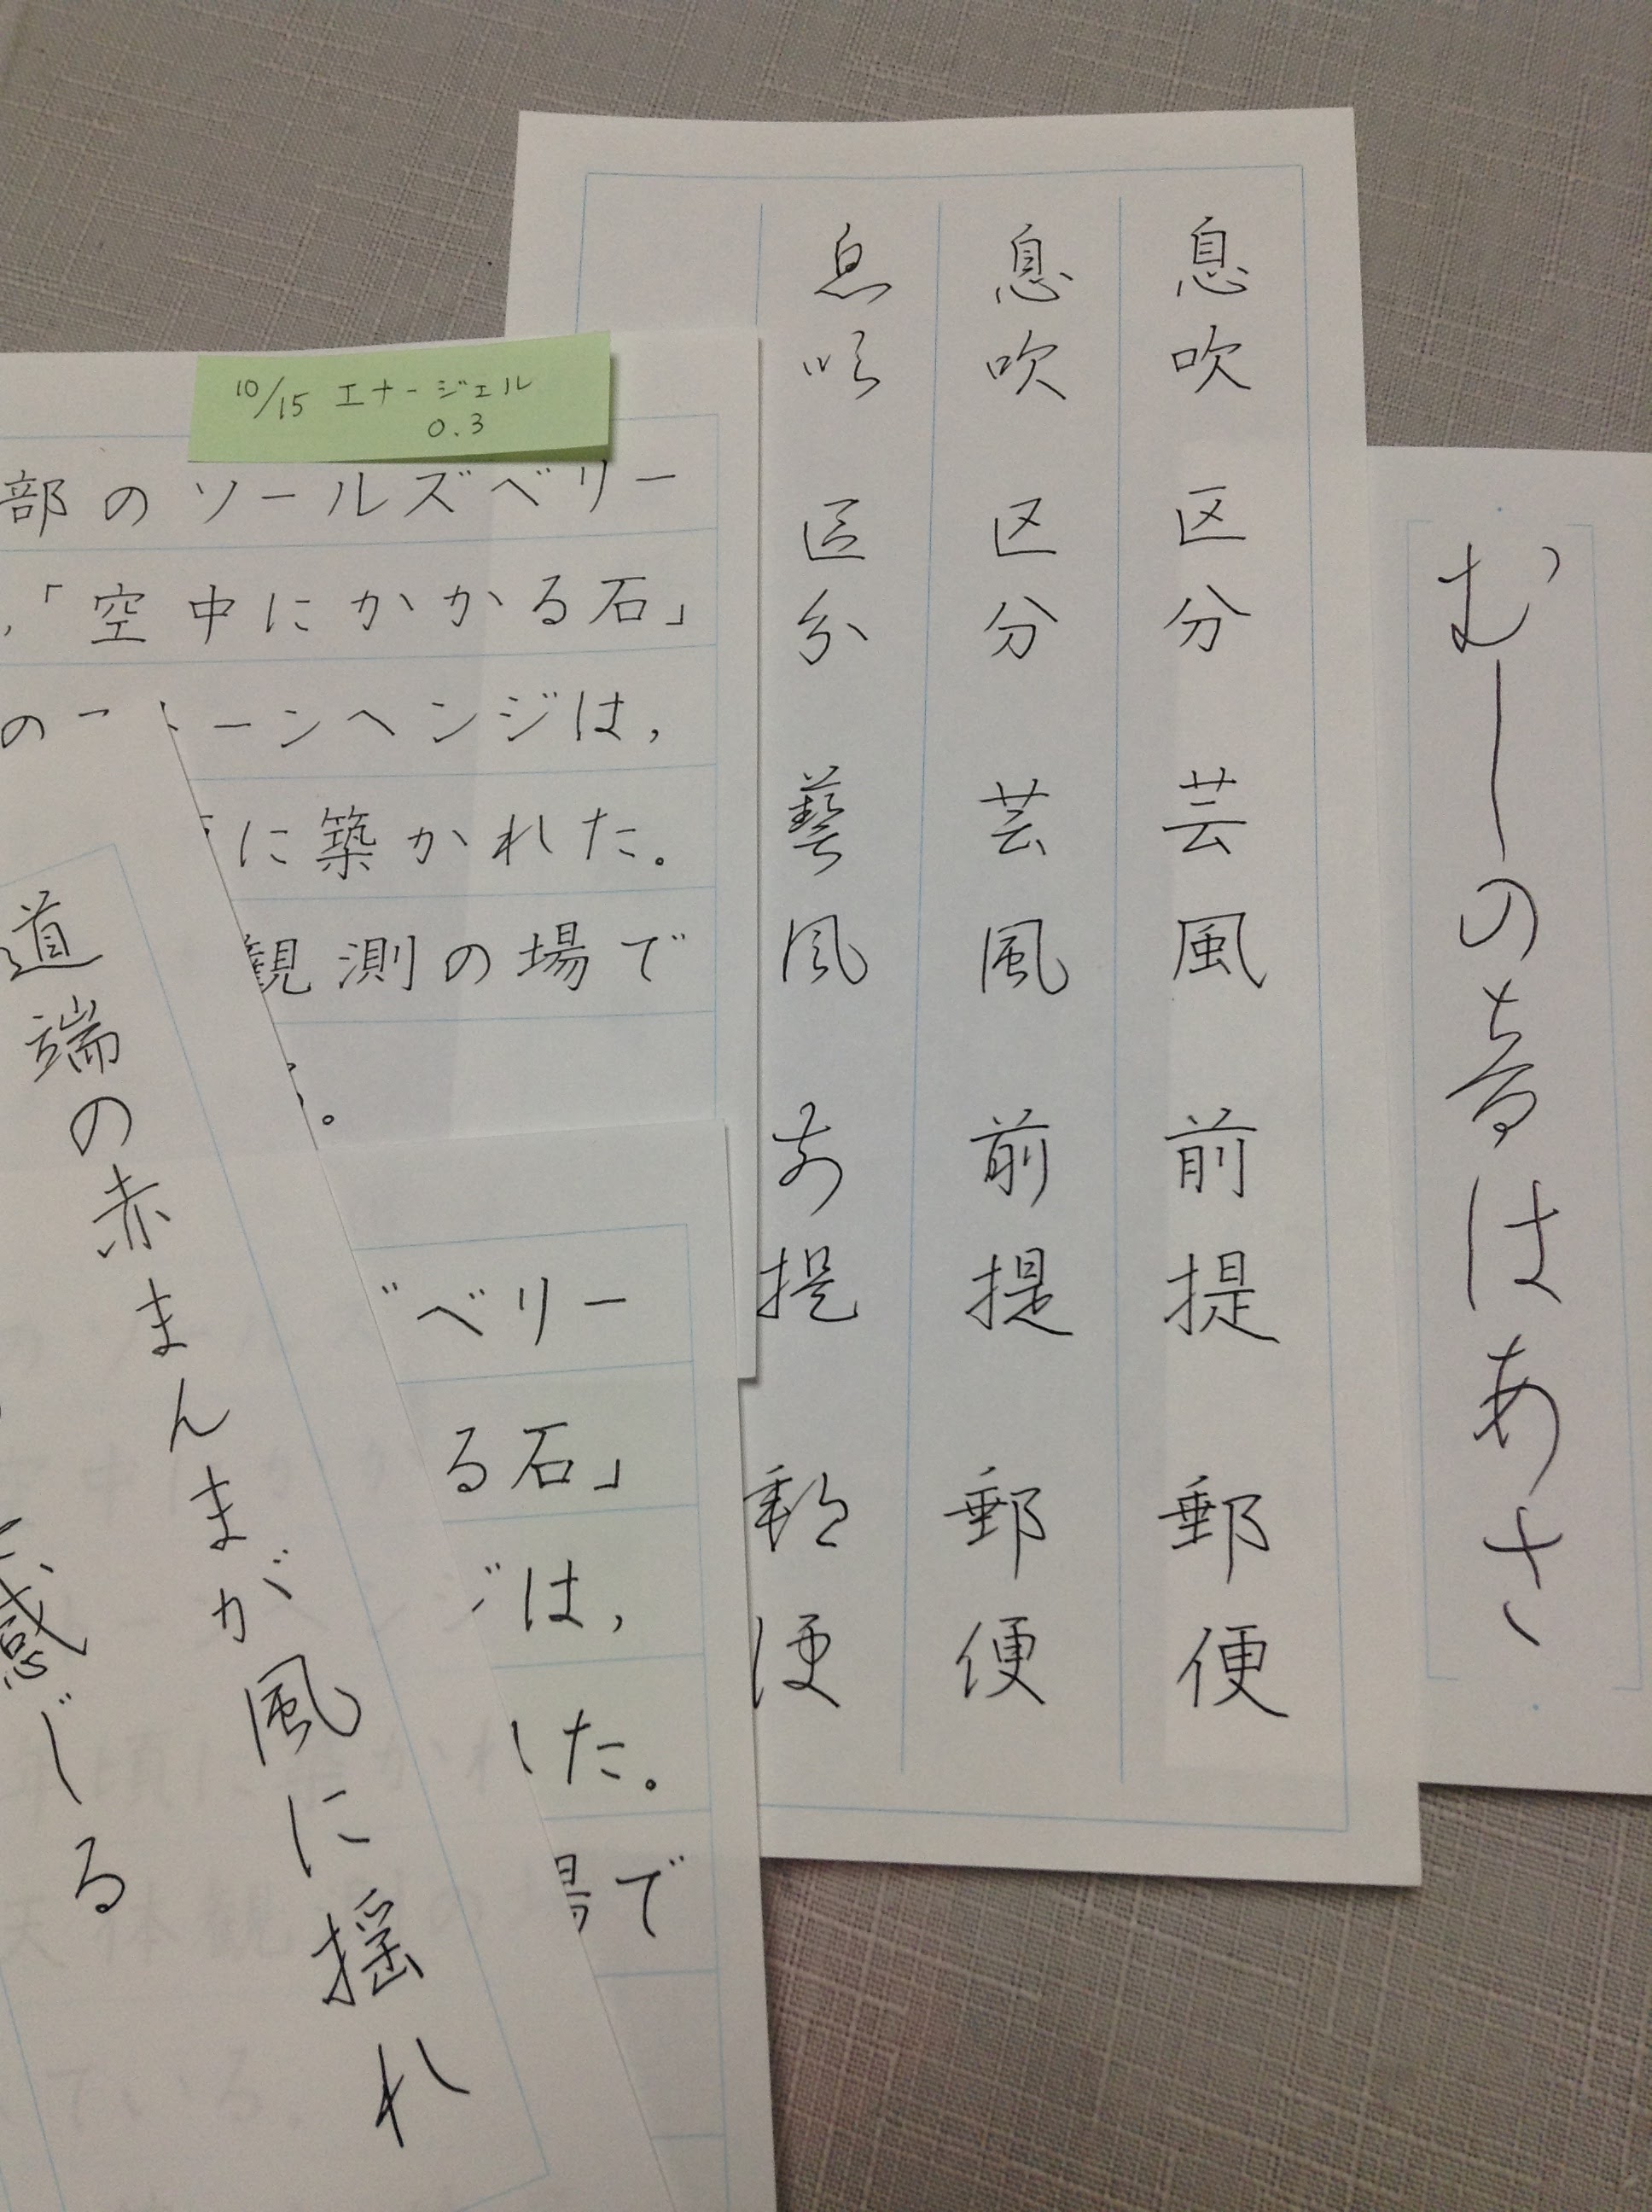 むしの音はあさ
息吹 区分 芸風 前提 郵便
息吹 区分 芸風 前提 郵便
息吹 区分 藝風 前提 郵便
10/15 エナージェル
0.3
部のソールズベリー
,「空中にかかる石」
の ーンヘンジは,
に築かれた。
観測の場で
。
ベリー
る石」
は,
た。
場で
道端の赤まんまが風に揺れ
感じる